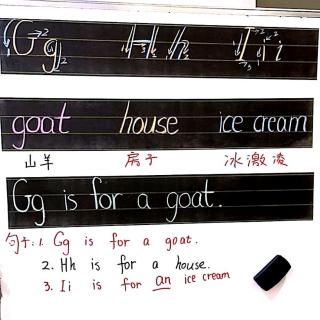 Gg Hh Ii
goat house ice cream
山羊 房子 冰激凌
Gg is for a goat.
句子: 1. Gg is for a goat.
2. Hh is for a house.
3. Ii is for an ice cream